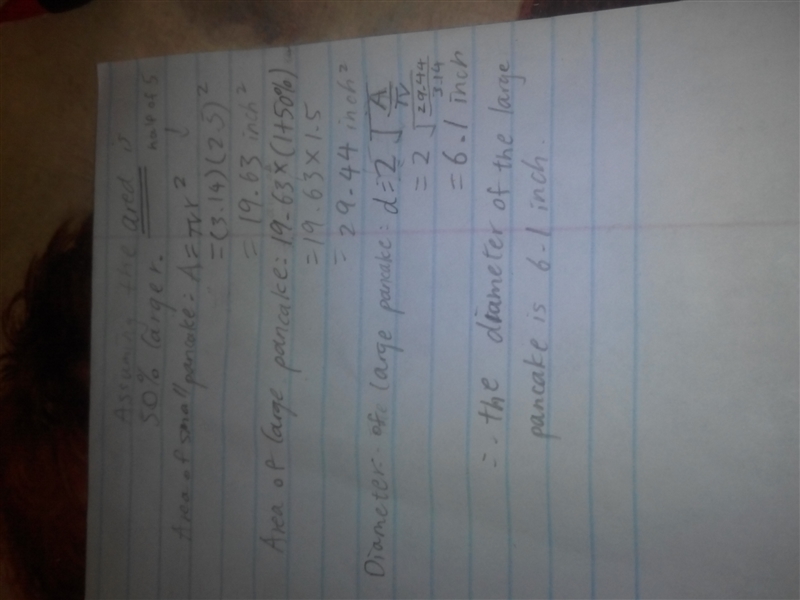 Assuming the area is
50% larger.
half of 5
Area of small pancake: A = πr² ↓
= (3.14)(2.5)²
= 19.63 inch²
Area of large pancake: 19.63 × (1+50%)
= 19.63 × 1.5
= 29.44 inch²
Diameter of large pancake: d = 2 √(A/π)
= 2 √(29.44/3.14)
= 6.1 inch
∴ the diameter of the large
pancake is 6.1 inch.